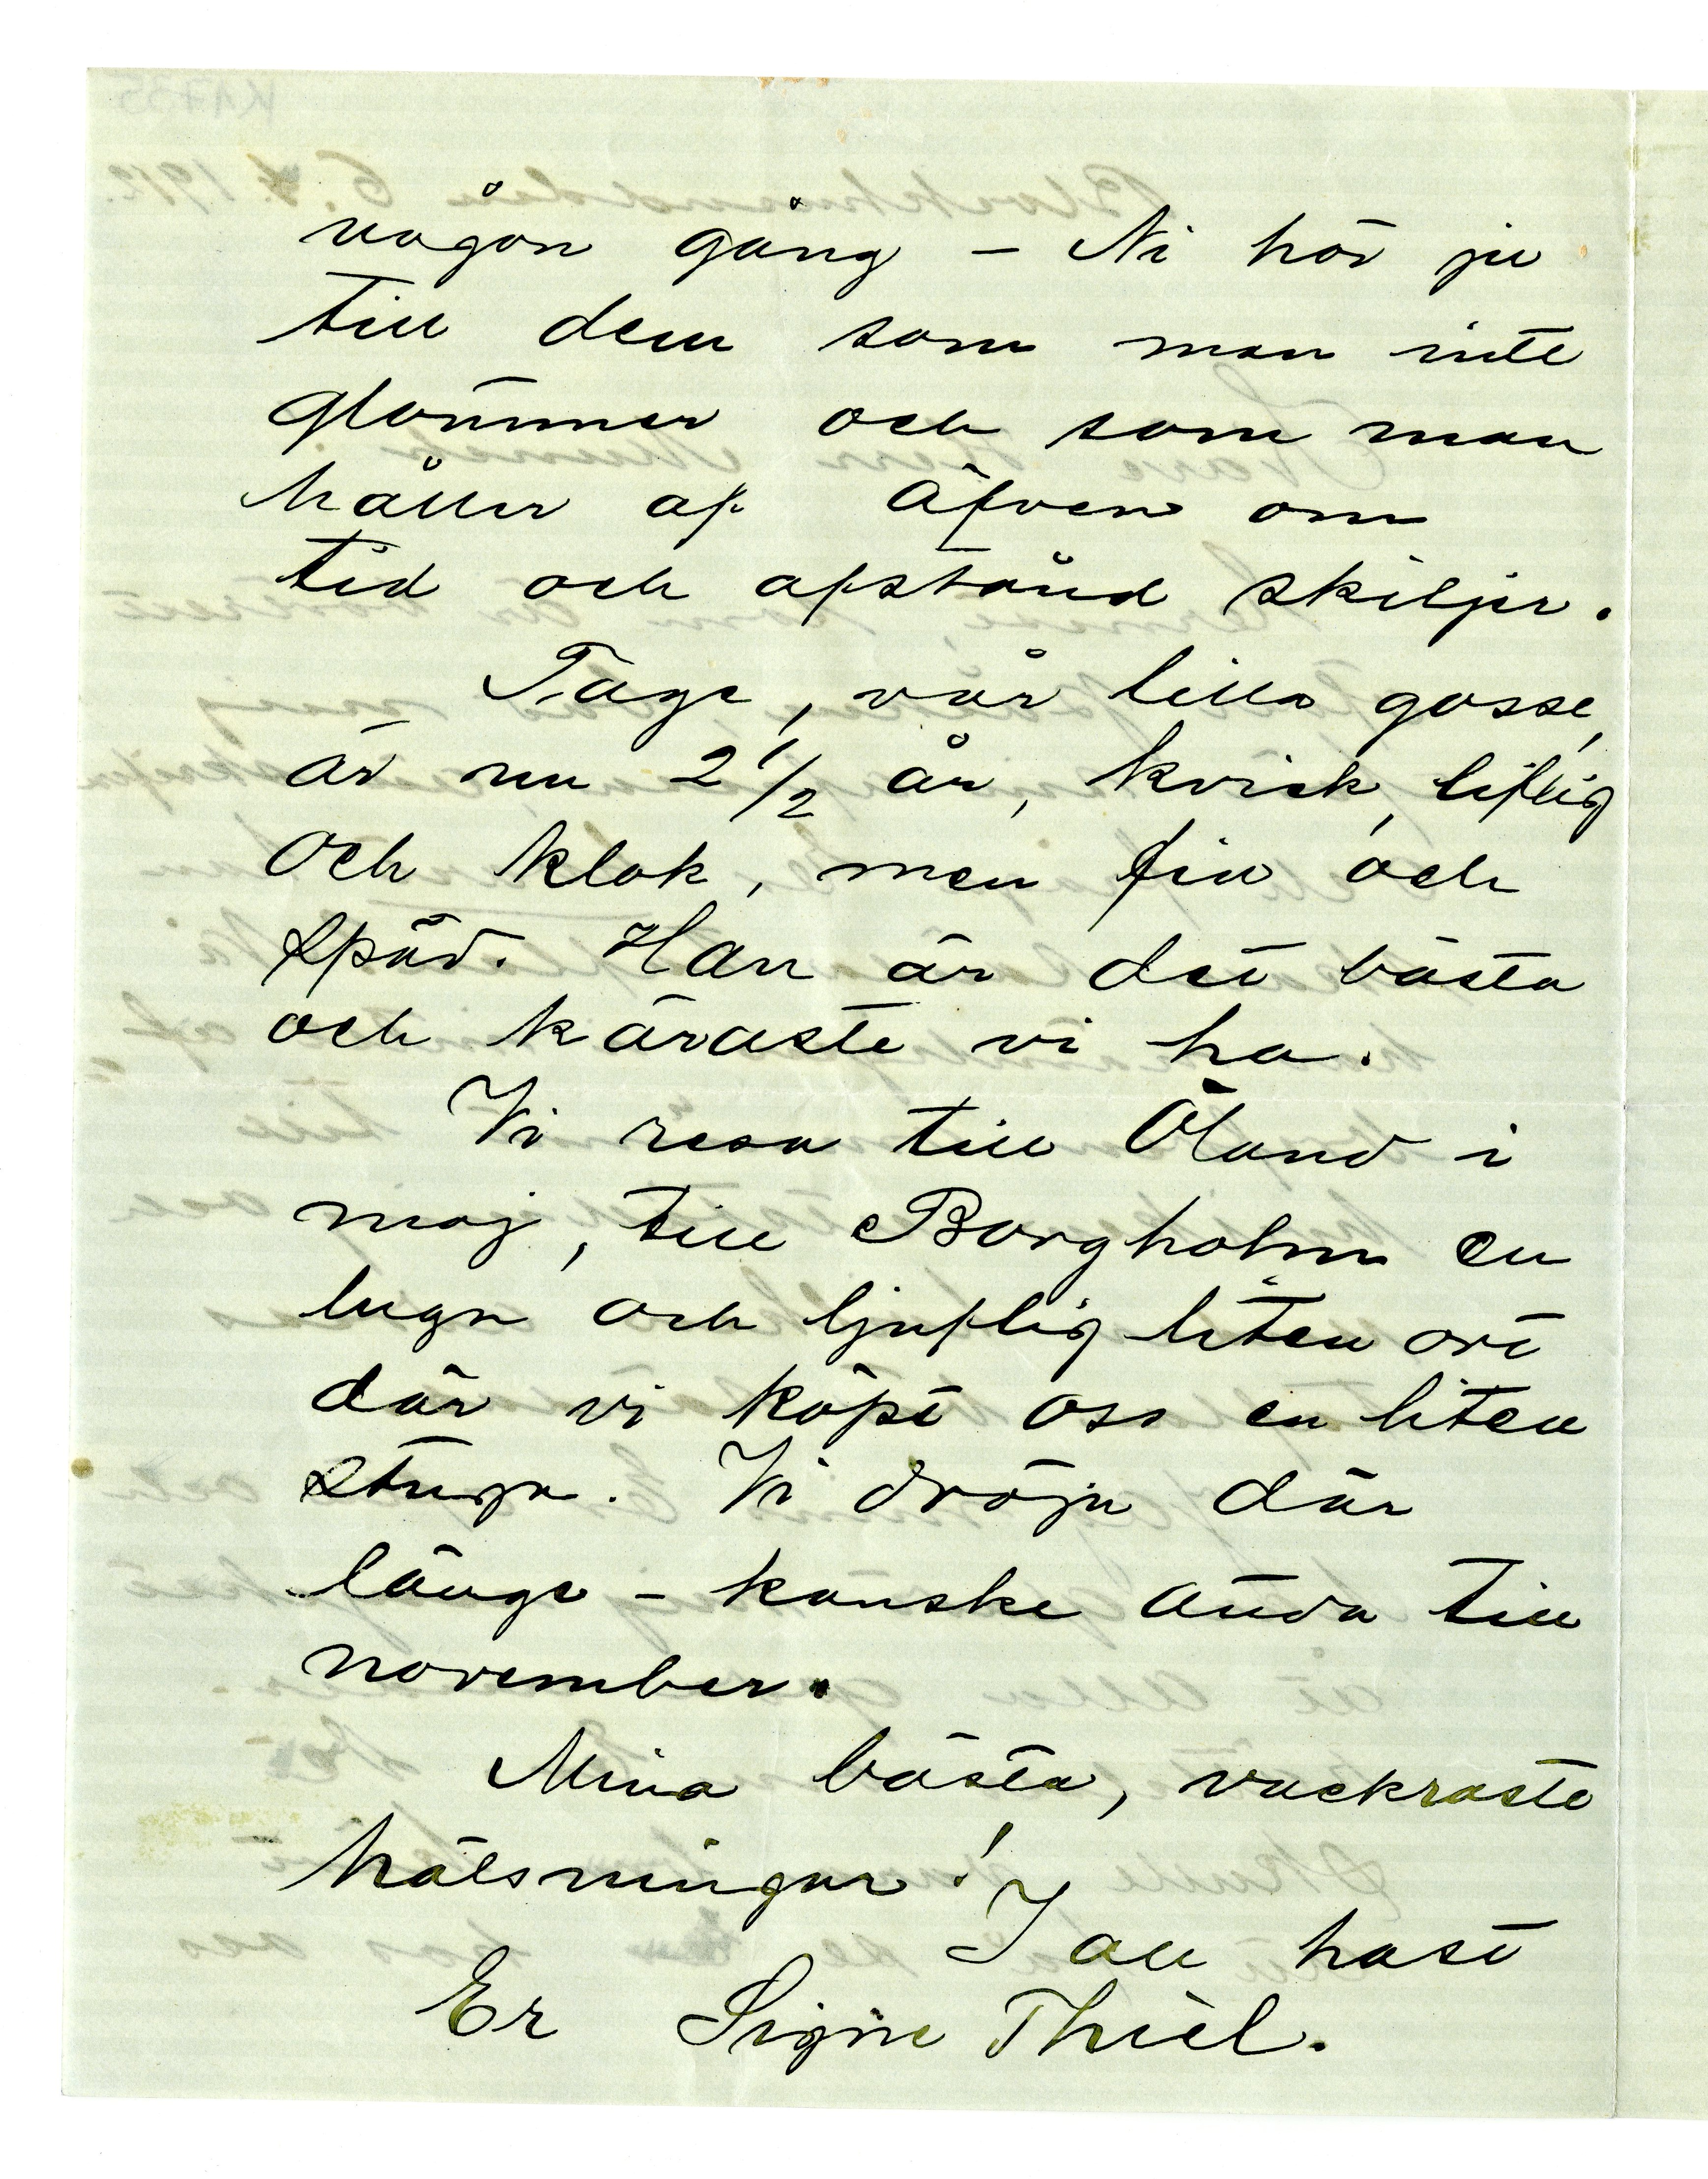 någon gång – Ni hör ju
till dem som man inte
glömmer och som man
håller af äfven om
tid och afstånd skiljer.
Tage, vår lilla gosse,
är nu 2 1/2 år, kvick, liflig
och klok, men fin och
späd. Han är det bästa
och käraste vi ha.
Vi resa till Öland i
maj, till Borgholm en
lugn och ljuflig liten ort
där vi köpt oss en liten
stuga. Vi dröja där
länge – kanske ända till
november.
Mina bästa, vackraste
hälsningar!
I all hast
Er Signe Thiel.